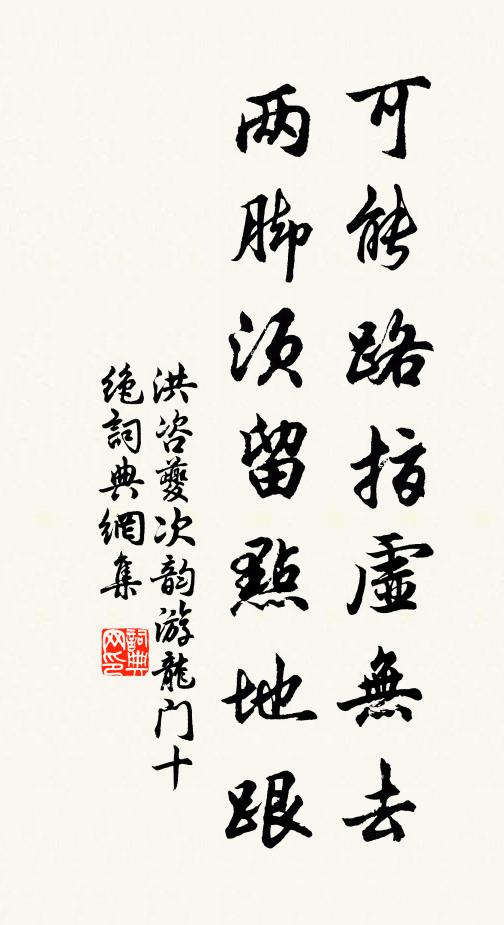 可能路指虛無去
两脚須留點地跟
洪咨夔次韵游龍门十
絶詞典網集
詞典网印